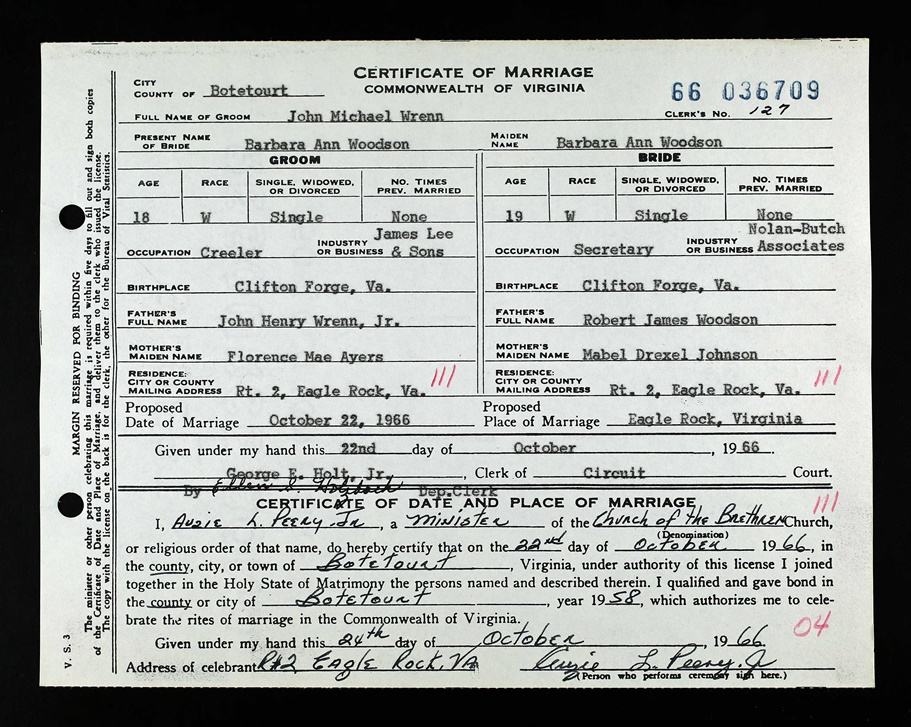 CERTIFICATE OF MARRIAGE
COMMONWEALTH OF VIRGINIA
66 036709
CITY
COUNTY OF Botetourt
CLERK'S NO. 127
FULL NAME OF GROOM John Michael Wrenn
PRESENT NAME OF BRIDE Barbara Ann Woodson MAIDEN NAME Barbara Ann Woodson
GROOM BRIDE
AGE RACE SINGLE, WIDOWED, OR DIVORCED NO. TIMES PREV. MARRIED AGE RACE SINGLE, WIDOWED, OR DIVORCED NO. TIMES PREV. MARRIED
18 W Single None 19 W Single None
OCCUPATION Creeler INDUSTRY OR BUSINESS James Lee & Sons OCCUPATION Secretary INDUSTRY OR BUSINESS Nolan-Butch Associates
BIRTHPLACE Clifton Forge, Va. BIRTHPLACE Clifton Forge, Va.
FATHER'S FULL NAME John Henry Wrenn, Jr. FATHER'S FULL NAME Robert James Woodson
MOTHER'S MAIDEN NAME Florence Mae Ayers MOTHER'S MAIDEN NAME Mabel Drexel Johnson
RESIDENCE: CITY OR COUNTY MAILING ADDRESS Rt. 2, Eagle Rock, Va. 111 RESIDENCE: CITY OR COUNTY MAILING ADDRESS Rt. 2, Eagle Rock, Va. 111
Proposed Date of Marriage October 22, 1966 Proposed Place of Marriage Eagle Rock, Virginia
Given under my hand this 22nd day of October, 1966.
George E. Holt, Jr., Clerk of Circuit Court.
By Ellen Dep.Clerk
CERTIFICATE OF DATE AND PLACE OF MARRIAGE 111
I, Auzie L. Peery Jr, a Minister of the Church of the Brethren Church,
(Denomination)
or religious order of that name, do hereby certify that on the 22nd day of October 1966, in
the county, city, or town of Botetourt, Virginia, under authority of this license I joined
together in the Holy State of Matrimony the persons named and described therein. I qualified and gave bond in
the county or city of Botetourt, year 1958, which authorizes me to cele-
brate the rites of marriage in the Commonwealth of Virginia. 04
Given under my hand this 24th day of October, 1966
Address of celebrant Rt2 Eagle Rock, Va Auzie L. Peery, Jr
(Person who performs ceremony sign here.)
V. S. 3
MARGIN RESERVED FOR BINDING
The minister or other person celebrating this marriage is required within five days to fill out and sign both copies
of the Certificate of Date and Place of Marriage, and deliver them to the clerk who issued the license.
The copy with the license on the back is for the clerk, the other for the Bureau of Vital Statistics.